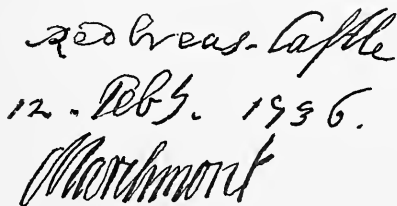 Redbreas-Castle
12. Feby. 1736.
Marchmont